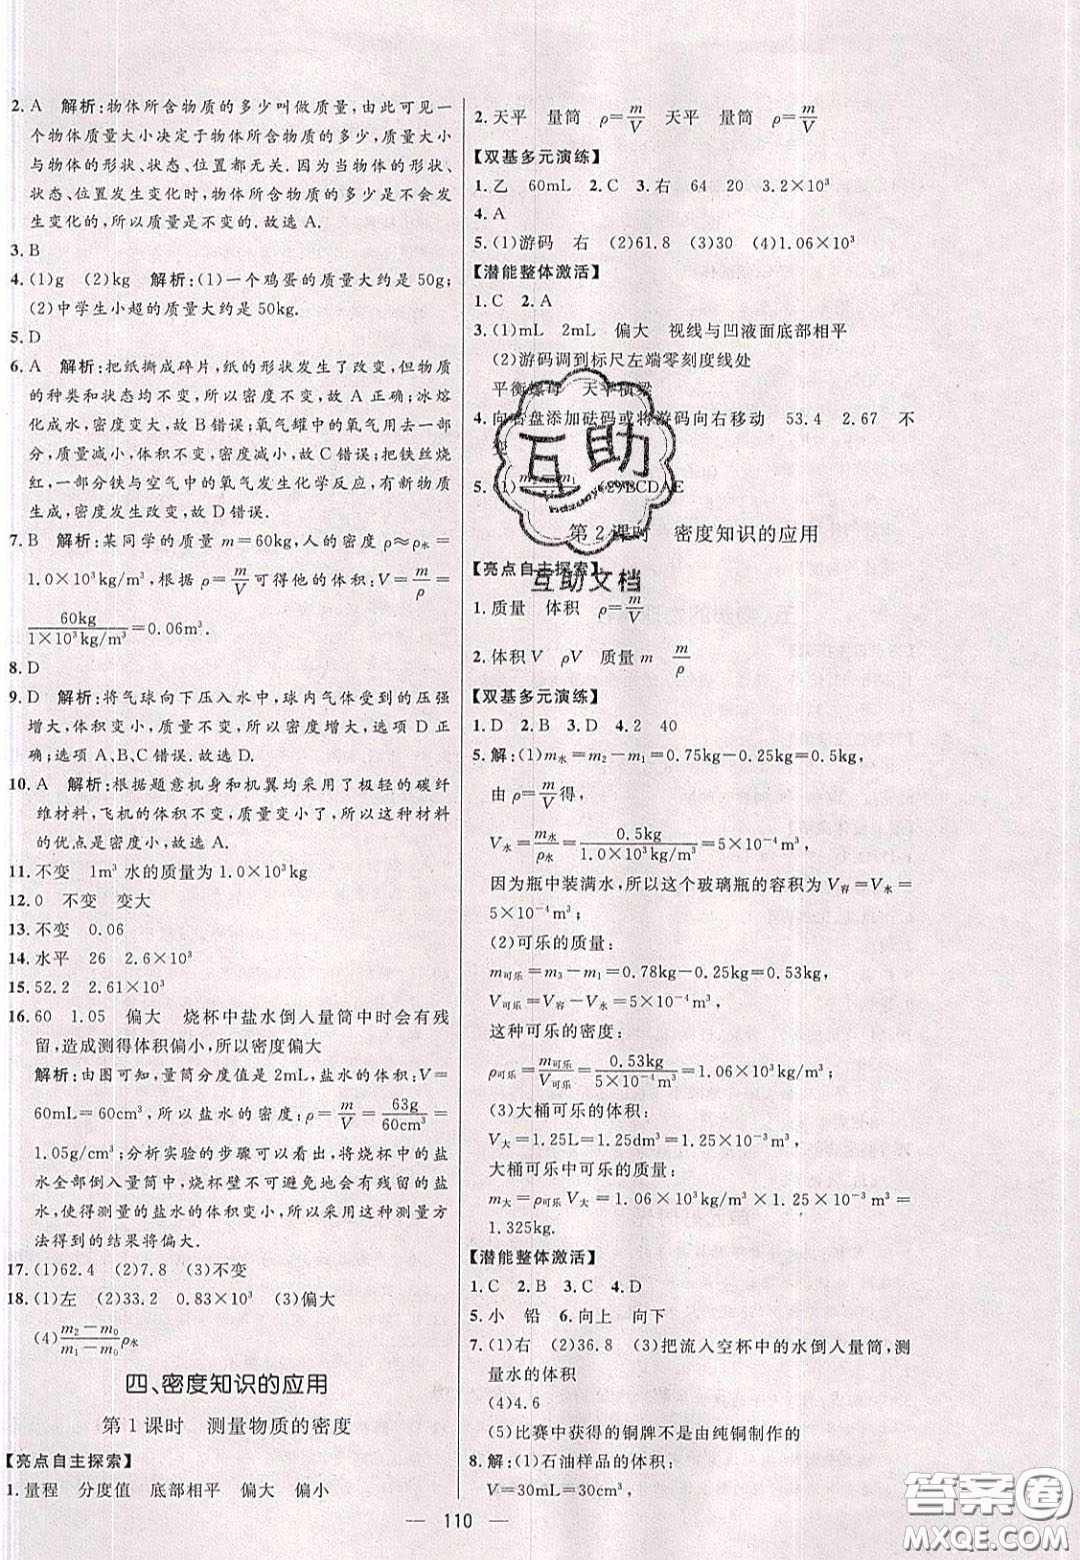 2. A 解析:物体所含物质的多少叫做质量,由此可见一
个物体质量大小决定于物体所含物质的多少,质量大小
与物体的形状、状态、位置都无关. 因为当物体的形状、
状态、位置发生变化时,物体所含物质的多少是不会发
生变化的,所以质量是不变的.故选 A.
3. B
4. (1)g (2)kg 解析:(1)一个鸡蛋的质量大约是 50g;
(2)中学生小超的质量大约是 50kg.
5. D
6. A 解析:把纸撕成碎片,纸的形状发生了改变,但物质
的种类和状态均不变,所以密度不变,故 A 正确;冰熔
化成水,密度变大,故 B 错误;氧气罐中的氧气用去一部
分,质量减小,体积不变,密度减小,故 C 错误;把铁丝烧
红,一部分铁与空气中的氧气发生化学反应,有新物质
生成,密度发生改变,故 D 错误.
7. B 解析:某同学的质量 m=60kg,人的密度 ρ≈ρ水=
1.0×10³kg/m³,根据 ρ=m/V 他可得他的体积:V=m/ρ=
60kg/(1×10³kg/m³)=0.06m³.
8. D
9. D 解析:将气球向下压入水中,球内气体受到的压强
增大,体积变小,质量不变,所以密度增大,选项 D 正
确;选项 A、B、C 错误.故选 D.
10. A 解析:根据题意机身和机翼均采用了极轻的碳纤
维材料,飞机的体积不变,质量变小了,所以这种材料
的优点是密度小,故选 A.
11. 不变 1m³ 水的质量为 1.0×10³kg
12. 0 不变 变大
13. 不变 0.06
14. 水平 26 2.6×10³
15. 52.2 2.61×10³
16. 60 1.05 偏大 烧杯中盐水倒入量筒中时会有残
留,造成测得体积偏小,所以密度偏大
解析:由图可知,量筒分度值是 2mL,盐水的体积:V=
60mL=60cm³,所以盐水的密度:ρ=m/V=63g/60cm³=
1.05g/cm³;分析实验的步骤可以看出,将烧杯中的盐
水全部倒入量筒中,烧杯壁不可避免地会有残留的盐
水,使得测量的盐水的体积变小,所以这种测量方
法得到的结果将偏大.
17. (1)62.4 (2)7.8 (3)不变
18. (1)左 (2)33.2 0.83×10³ (3)偏大
(4)(m₂-m₀)/(m₁-m₀)ρ水
四、密度知识的应用
第 1 课时 测量物质的密度
【亮点自主探索】
1. 量程 分度值 底部相平 偏大 偏小
2. 天平 量筒 ρ=m/V 天平 量筒 ρ=m/V
【双基多元演练】
1. 乙 60mL 2. C 3. 右 64 20 3.2×10³
4. A
5. (1)游码 右 (2)61.8 (3)30 (4)1.06×10³
【潜能整体激活】
1. C 2. A
3. (1)mL 2mL 偏大 视线与凹液面底部相平
(2)游码调到标尺左端零刻度线处
平衡螺母 天平横梁
4. 向右盘添加砝码或将游码向右移动 53.4 2.67 不
5. (1) BCDAE
第 2 课时 密度知识的应用
【亮点自主探索】
1. 质量 体积 ρ=m/V
2. 体积 V ρV 质量 m m/ρ
【双基多元演练】
1. D 2. B 3. D 4. 2 40
5. 解:(1)m水=m₂-m₁=0.75kg-0.25kg=0.5kg,
由 ρ=m/V得,
V水=m水/ρ水=0.5kg/(1.0×10³kg/m³)=5×10⁻⁴m³,
因为瓶中装满水,所以这个玻璃瓶的容积为 V容=V水=
5×10⁻⁴m³;
(2)可乐的质量:
m可乐=m₃-m₁=0.78kg-0.25kg=0.53kg,
V可乐=V容=V水=5×10⁻⁴m³,
这种可乐的密度:
ρ可乐=m可乐/V可乐=0.53kg/(5×10⁻⁴m³)=1.06×10³kg/m³;
(3)大桶可乐的体积:
V大=1.25L=1.25dm³=1.25×10⁻³m³,
大桶可乐中可乐的质量:
m大=ρ可乐V大=1.06×10³kg/m³×1.25×10⁻³m³=
1.325kg.
【潜能整体激活】
1. C 2. B 3. C 4. D
5. 小 铅 6. 向上 向下
7. (1)右 (2)36.8 (3)把流入空杯中的水倒入量筒,测
量水的体积
(4)4.6
(5)比赛中获得的铜牌不是由纯铜制作的
8. 解:(1)石油样品的体积:
V=30mL=30cm³,
互助
hdzuoye.com
互助文档
答案圈
MXQE.COM
— 110 —